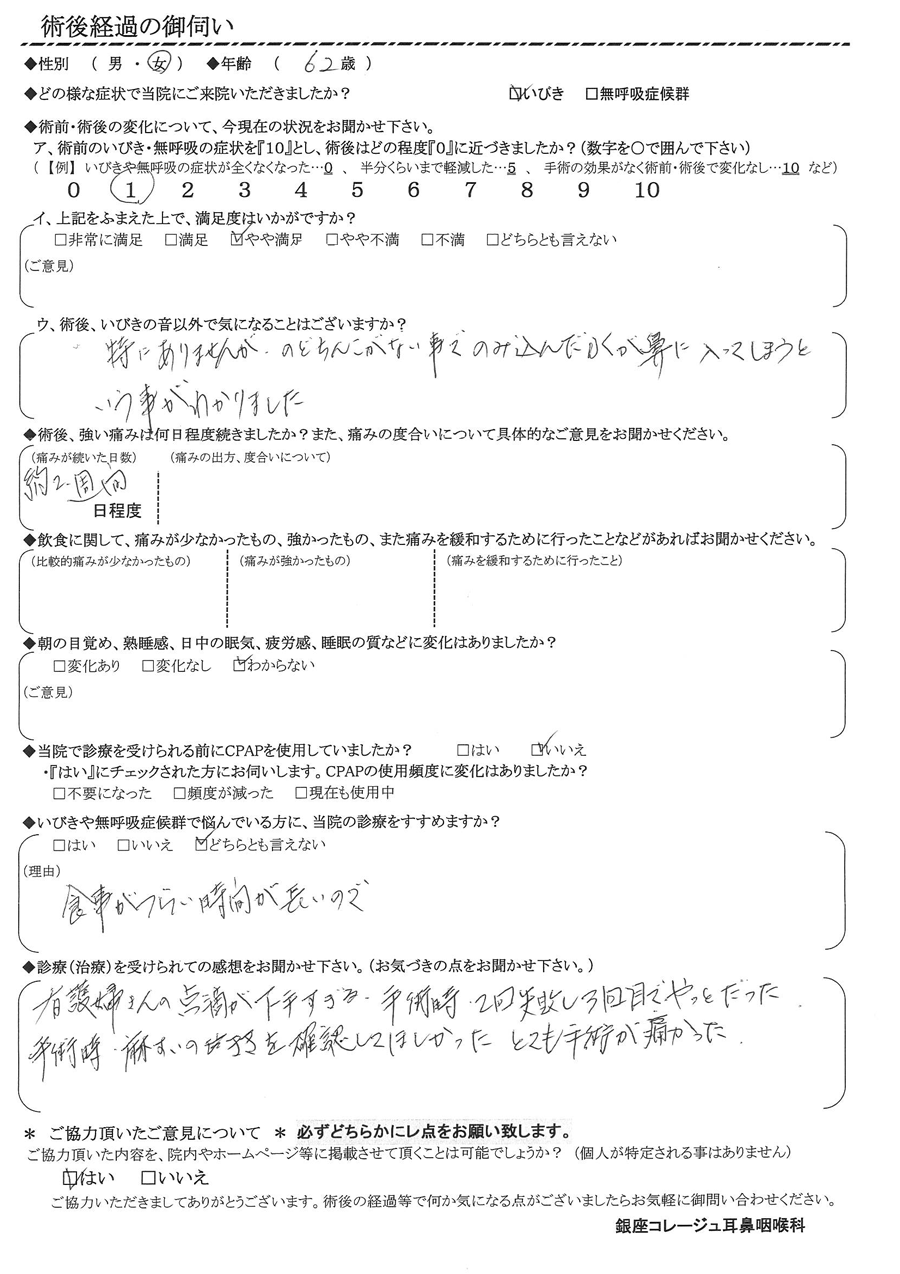 術後経過の御伺い
◆性別 （ 男 ・ 女 ） ◆年齢 （ 62 歳 ）
◆どの様な症状で当院にご来院いただきましたか？ ☑いびき □無呼吸症候群
◆術前・術後の変化について、今現在の状況をお聞かせ下さい。
ア、術前のいびき・無呼吸の症状を『10』とし、術後はどの程度『0』に近づきましたか？（数字を〇で囲んで下さい）
（【例】いびきや無呼吸の症状が全くなくなった…0 、 半分くらいまで軽減した…5 、 手術の効果がなく術前・術後で変化なし…10 など）
0 1 2 3 4 5 6 7 8 9 10
イ、上記をふまえた上で、満足度はいかがですか？
□非常に満足 □満足 ☑やや満足 □やや不満 □不満 □どちらとも言えない
（ご意見）
ウ、術後、いびきの音以外で気になることはございますか？
特にありませんが、のどちんこがない事で のみ込んだ が鼻に入ってしまうと
いう事がわかりました
◆術後、強い痛みは何日程度続きましたか？また、痛みの度合いについて具体的なご意見をお聞かせください。
（痛みが続いた日数） （痛みの出方、度合いについて）
約2週間
日程度
◆飲食に関して、痛みが少なかったもの、強かったもの、また痛みを緩和するために行ったことなどがあればお聞かせください。
（比較的痛みが少なかったもの） （痛みが強かったもの） （痛みを緩和するために行ったこと）
◆朝の目覚め、熟睡感、日中の眠気、疲労感、睡眠の質などに変化はありましたか？
□変化あり □変化なし ☑わからない
（ご意見）
◆当院で診療を受けられる前にCPAPを使用していましたか？ □はい ☑いいえ
・『はい』にチェックされた方にお伺いします。CPAPの使用頻度に変化はありましたか？
□不要になった □頻度が減った □現在も使用中
◆いびきや無呼吸症候群で悩んでいる方に、当院の診療をすすめますか？
□はい □いいえ ☑どちらとも言えない
（理由）
食事がつらい時間が長いので
◆診療（治療）を受けられての感想をお聞かせ下さい。（お気づきの点をお聞かせ下さい。）
看護婦さんの点滴が下手すぎる。手術時、2回失敗し3回目でやっとだった。
手術時、麻すいの効きを確認してほしかった とても手術が痛かった。
＊ ご協力頂いたご意見について ＊ 必ずどちらかにレ点をお願い致します。
ご協力頂いた内容を、院内やホームページ等に掲載させて頂くことは可能でしょうか？（個人が特定される事はありません）
☑はい □いいえ
ご協力いただきましてありがとうございます。術後の経過等で何か気になる点がございましたらお気軽に御問い合わせください。
銀座コレージュ耳鼻咽喉科